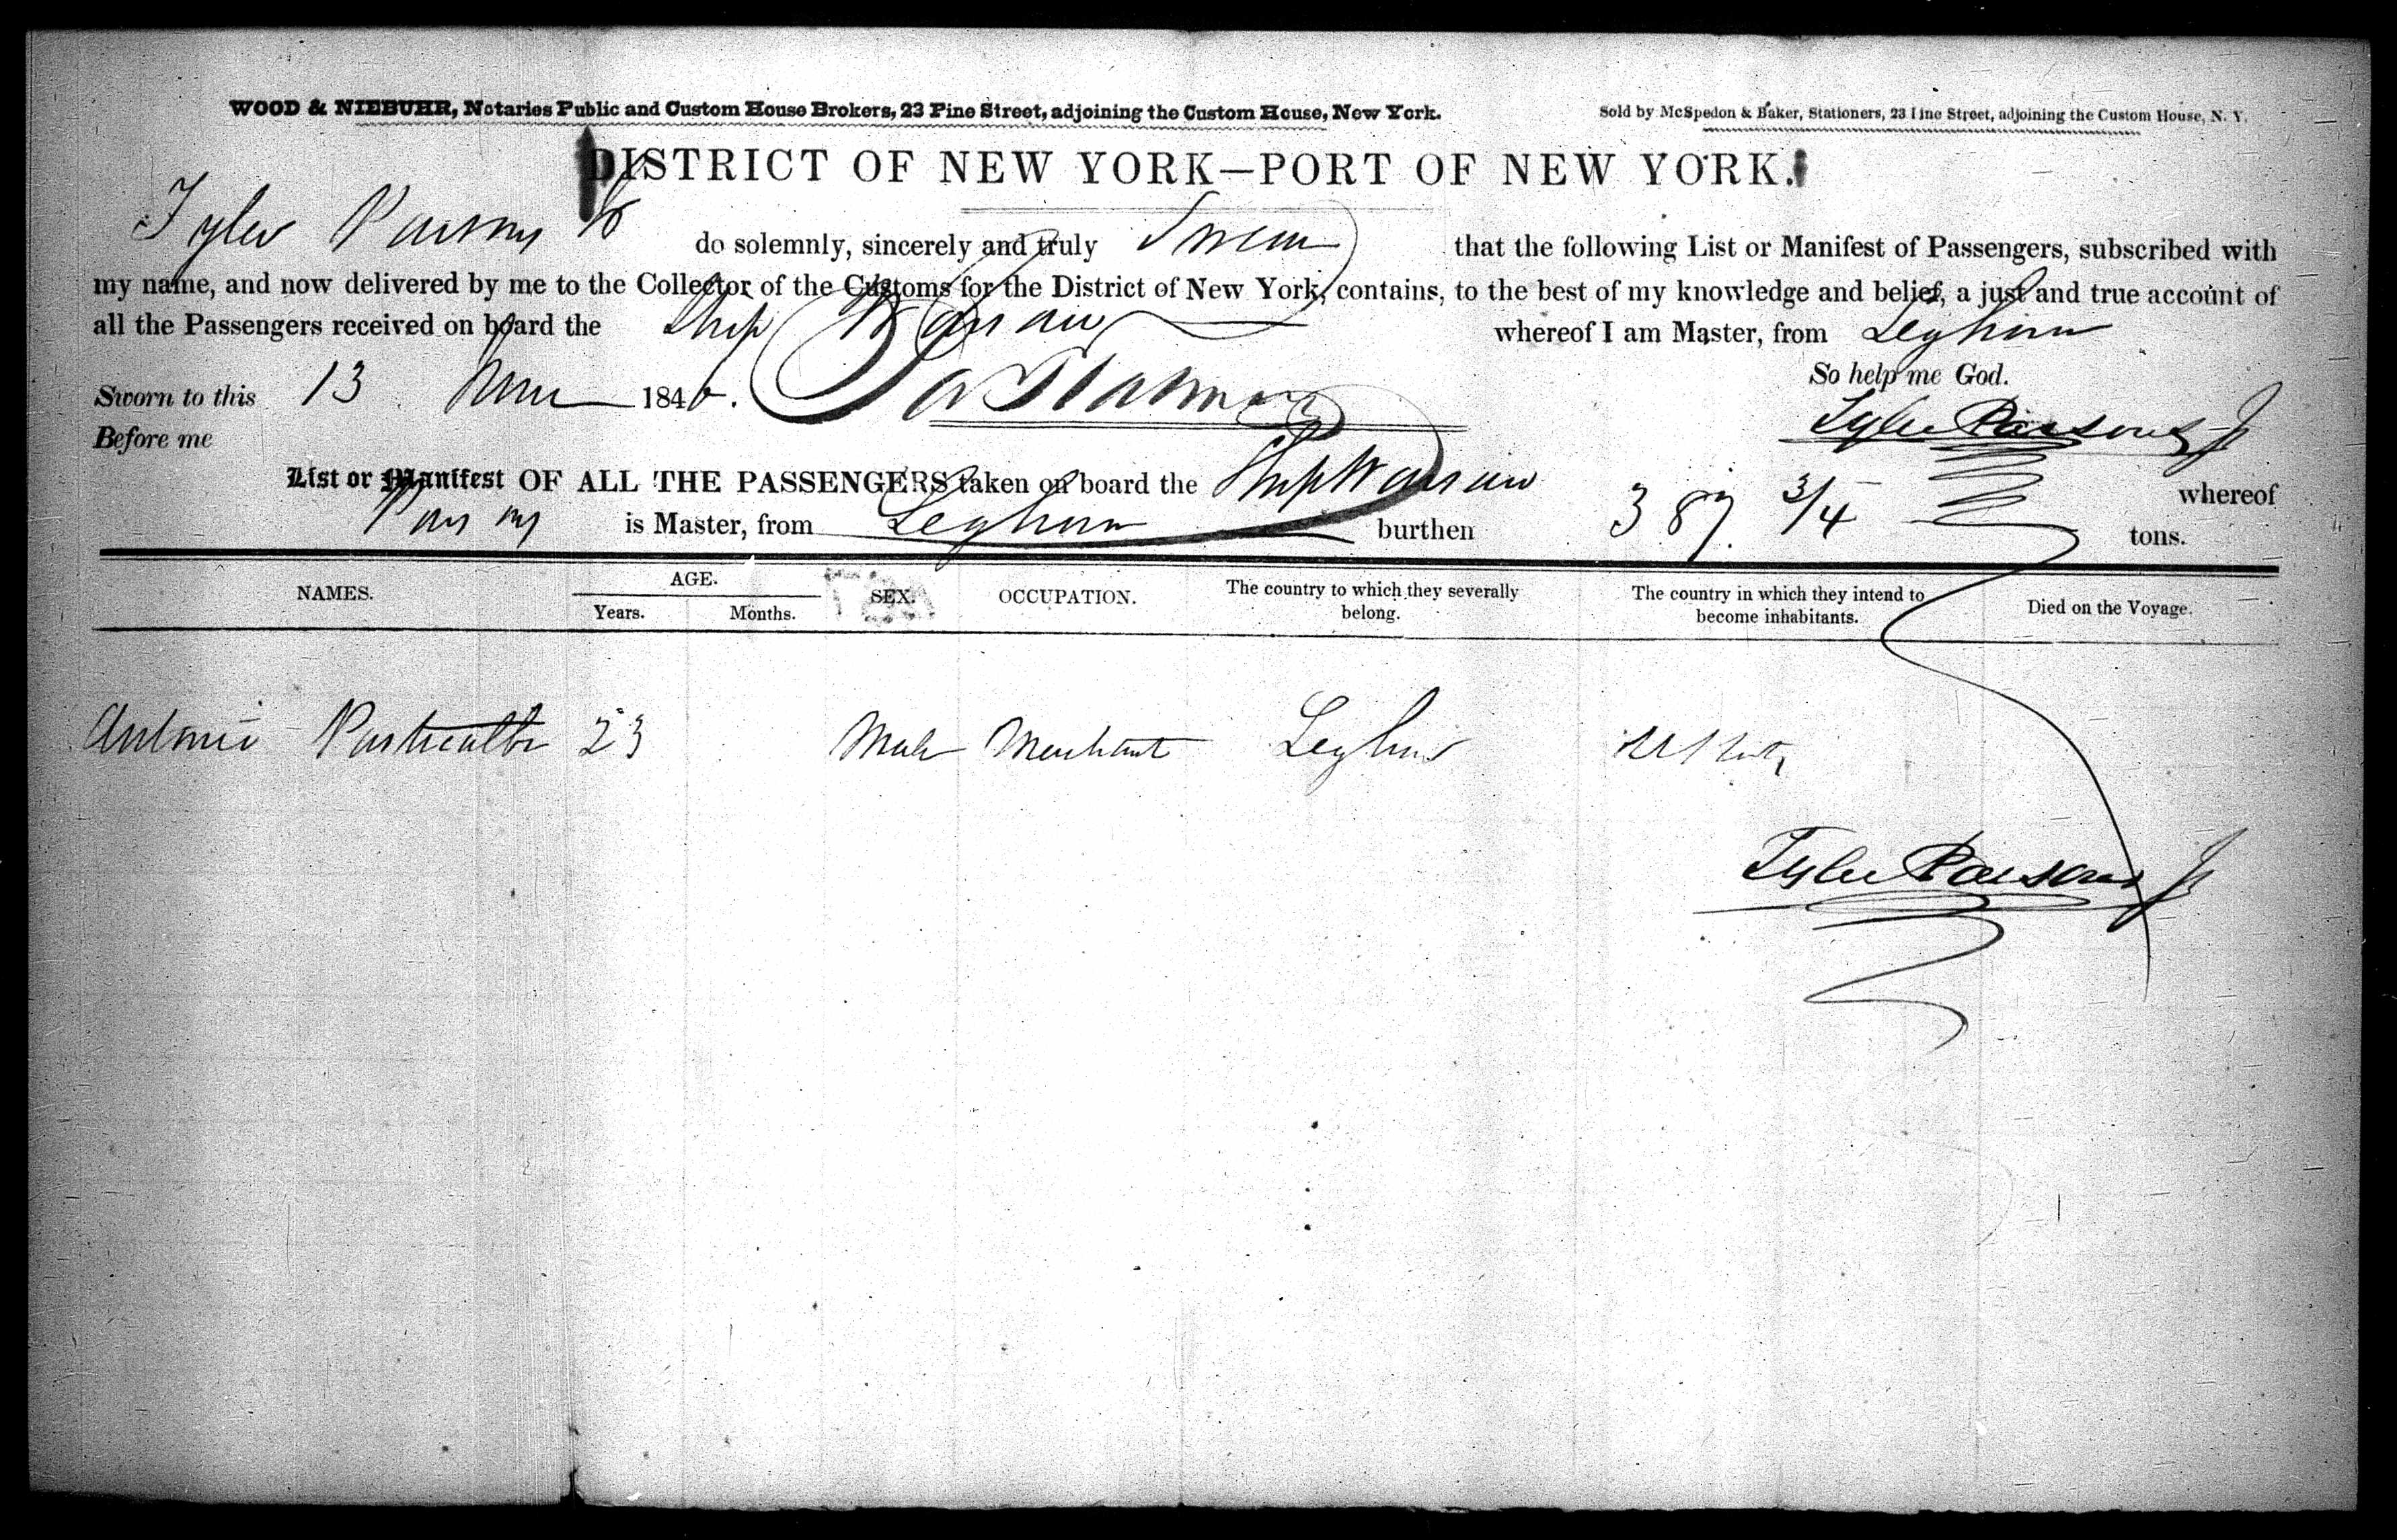 WOOD & NIEBUHR, Notaries Public and Custom House Brokers, 23 Pine Street, adjoining the Custom House, New York.
Sold by McSpedon & Baker, Stationers, 23 Pine Street, adjoining the Custom House, N. Y.
DISTRICT OF NEW YORK—PORT OF NEW YORK.
Tyler Parsons Jr do solemnly, sincerely and truly Swear that the following List or Manifest of Passengers, subscribed with
my name, and now delivered by me to the Collector of the Customs for the District of New York, contains, to the best of my knowledge and belief, a just and true account of
all the Passengers received on board the Ship Warsaw whereof I am Master, from Leghorn
So help me God.
Sworn to this 13 June 1846.
Tyler Parsons Jr
Before me
List or Manifest OF ALL THE PASSENGERS taken on board the Ship Warsaw whereof
Parsons is Master, from Leghorn burthen 387 3/4 tons.
NAMES. AGE. SEX. OCCUPATION. The country to which they severally belong. The country in which they intend to become inhabitants. Died on the Voyage.
Years. Months.
Antonio 23 Male Merchant Leghorn U States
Tyler Parsons Jr